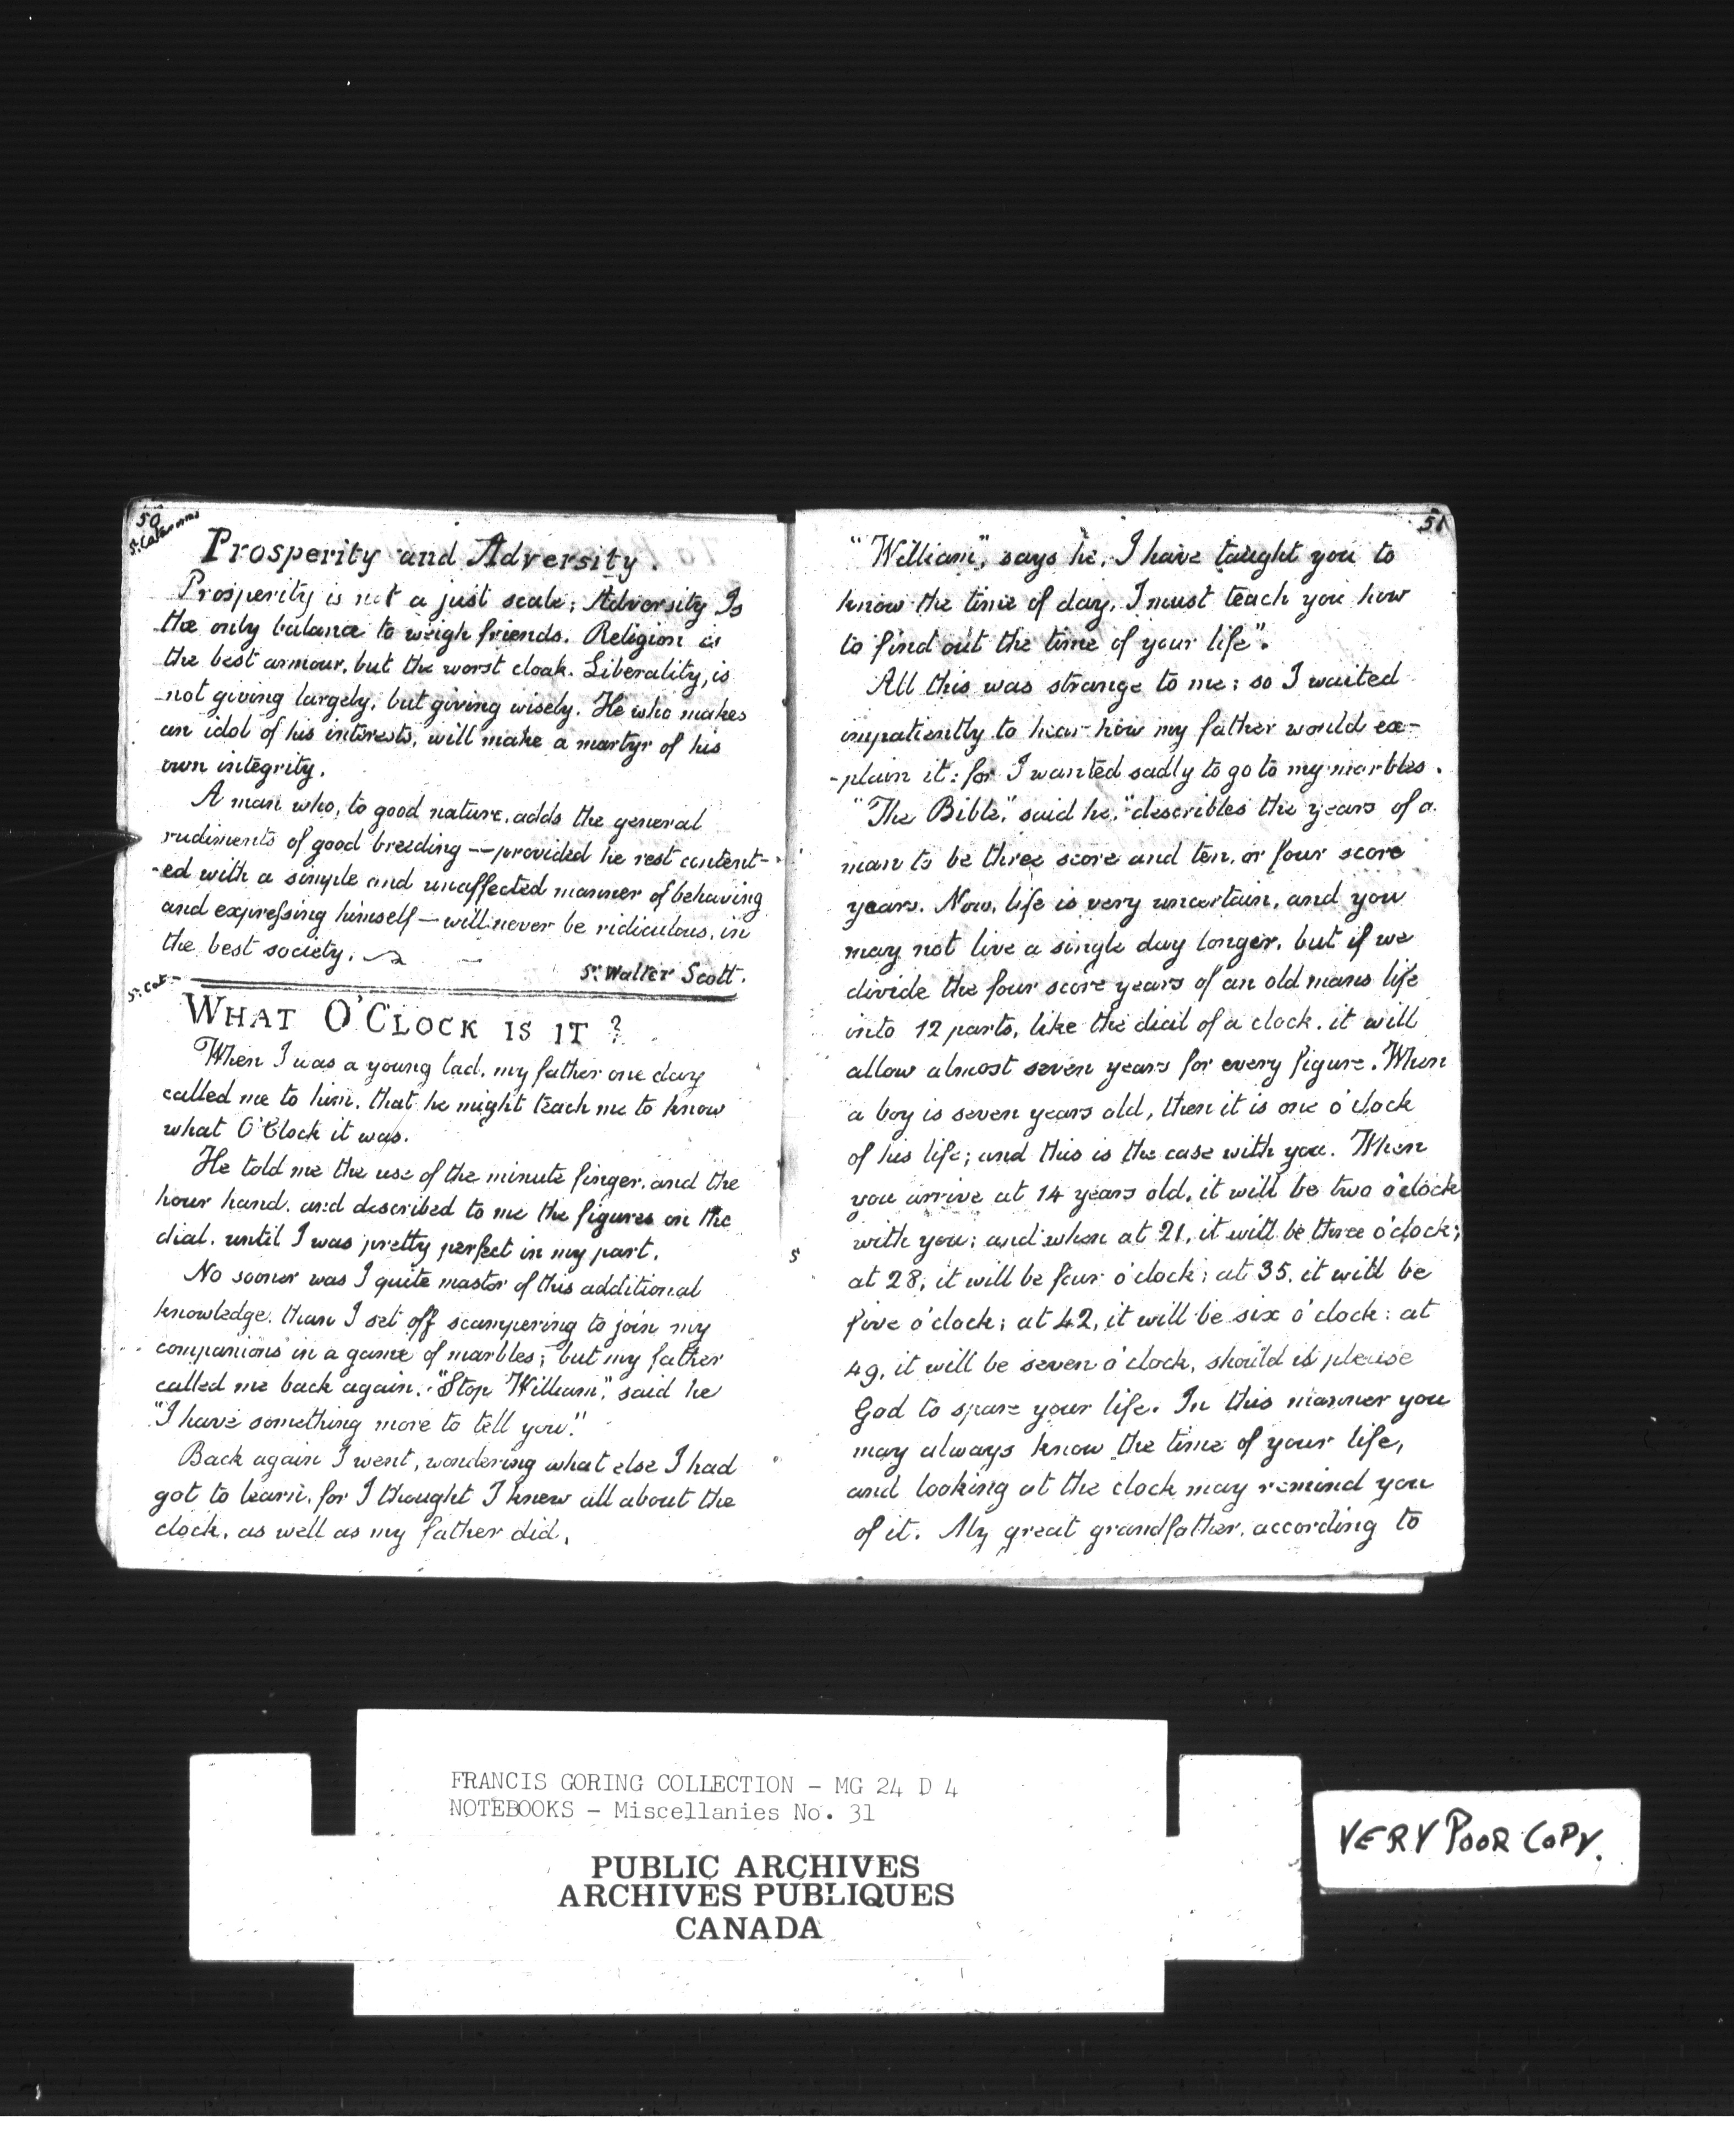 50
Prosperity and Adversity.
Prosperity is not a just scale; Adversity Is
the only balance to weigh friends. Religion is
the best armour, but the worst cloak. Liberality, is
not giving largely, but giving wisely. He who makes
an idol of his interests, will make a martyr of his
own integrity.
A man who, to good nature, adds the general
rudiments of good breeding — provided he rest content-
-ed with a simple and unaffected manner of behaving
and expressing himself — will never be ridiculous, in
the best society.
Sr. Walter Scott.
WHAT O'CLOCK IS IT ?
When I was a young lad, my father one day
called me to him, that he might teach me to know
what O'Clock it was.
He told me the use of the minute finger, and the
hour hand, and described to me the figures on the
dial, until I was pretty perfect in my part.
No sooner was I quite master of this additional
knowledge, than I set off scampering to join my
companions in a game of marbles; but my father
called me back again. "Stop William," said he
"I have something more to tell you."
Back again I went, wondering what else I had
got to learn, for I thought I knew all about the
clock, as well as my father did.
51
"William", says he, I have taught you to
know the time of day, I must teach you how
to find out the time of your life".
All this was strange to me; so I waited
impatiently to hear how my father would ex-
-plain it: for I wanted sadly to go to my marbles.
"The Bible," said he, "describles the years of a
man to be three score and ten, or four score
years. Now, life is very uncertain, and you
may not live a single day longer, but if we
divide the four score years of an old mans life
into 12 parts, like the dial of a clock, it will
allow almost seven years for every figure. When
a boy is seven years old, then it is one o'clock
of his life; and this is the case with you. When
you arrive at 14 years old, it will be two o'clock
with you; and when at 21, it will be three o'clock;
at 28, it will be four o'clock; at 35, it will be
five o'clock; at 42, it will be six o'clock: at
49, it will be seven o'clock, should it please
God to spare your life. In this manner you
may always know the time of your life,
and looking at the clock may remind you
of it. My great grandfather, according to
FRANCIS GORING COLLECTION - MG 24 D 4
NOTEBOOKS - Miscellanies No. 31
PUBLIC ARCHIVES
ARCHIVES PUBLIQUES
CANADA
VERY POOR COPY.